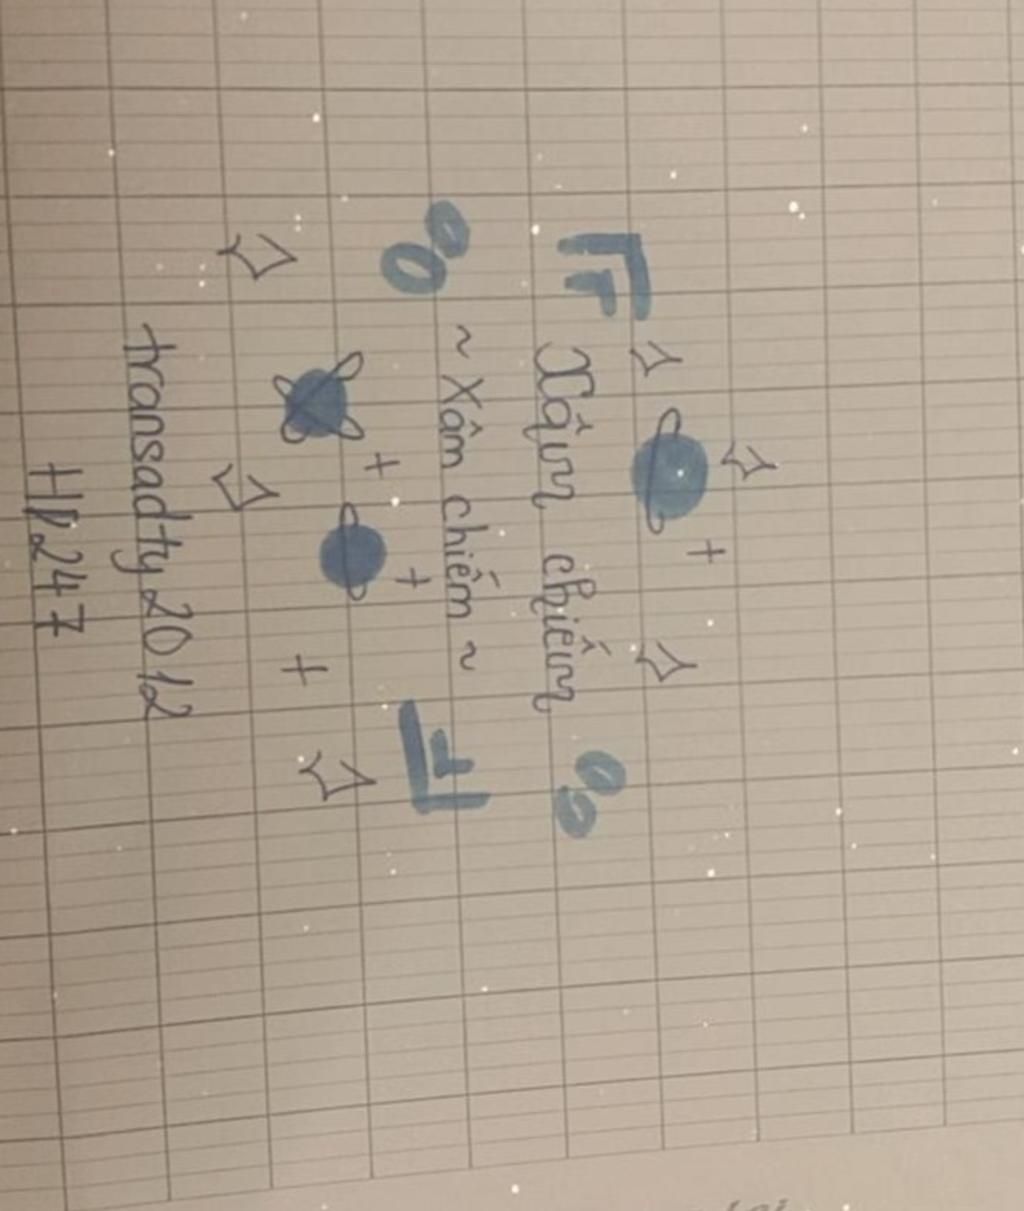 Xâm chiếm
~ Xâm chiếm ~
transadty2012
HD247